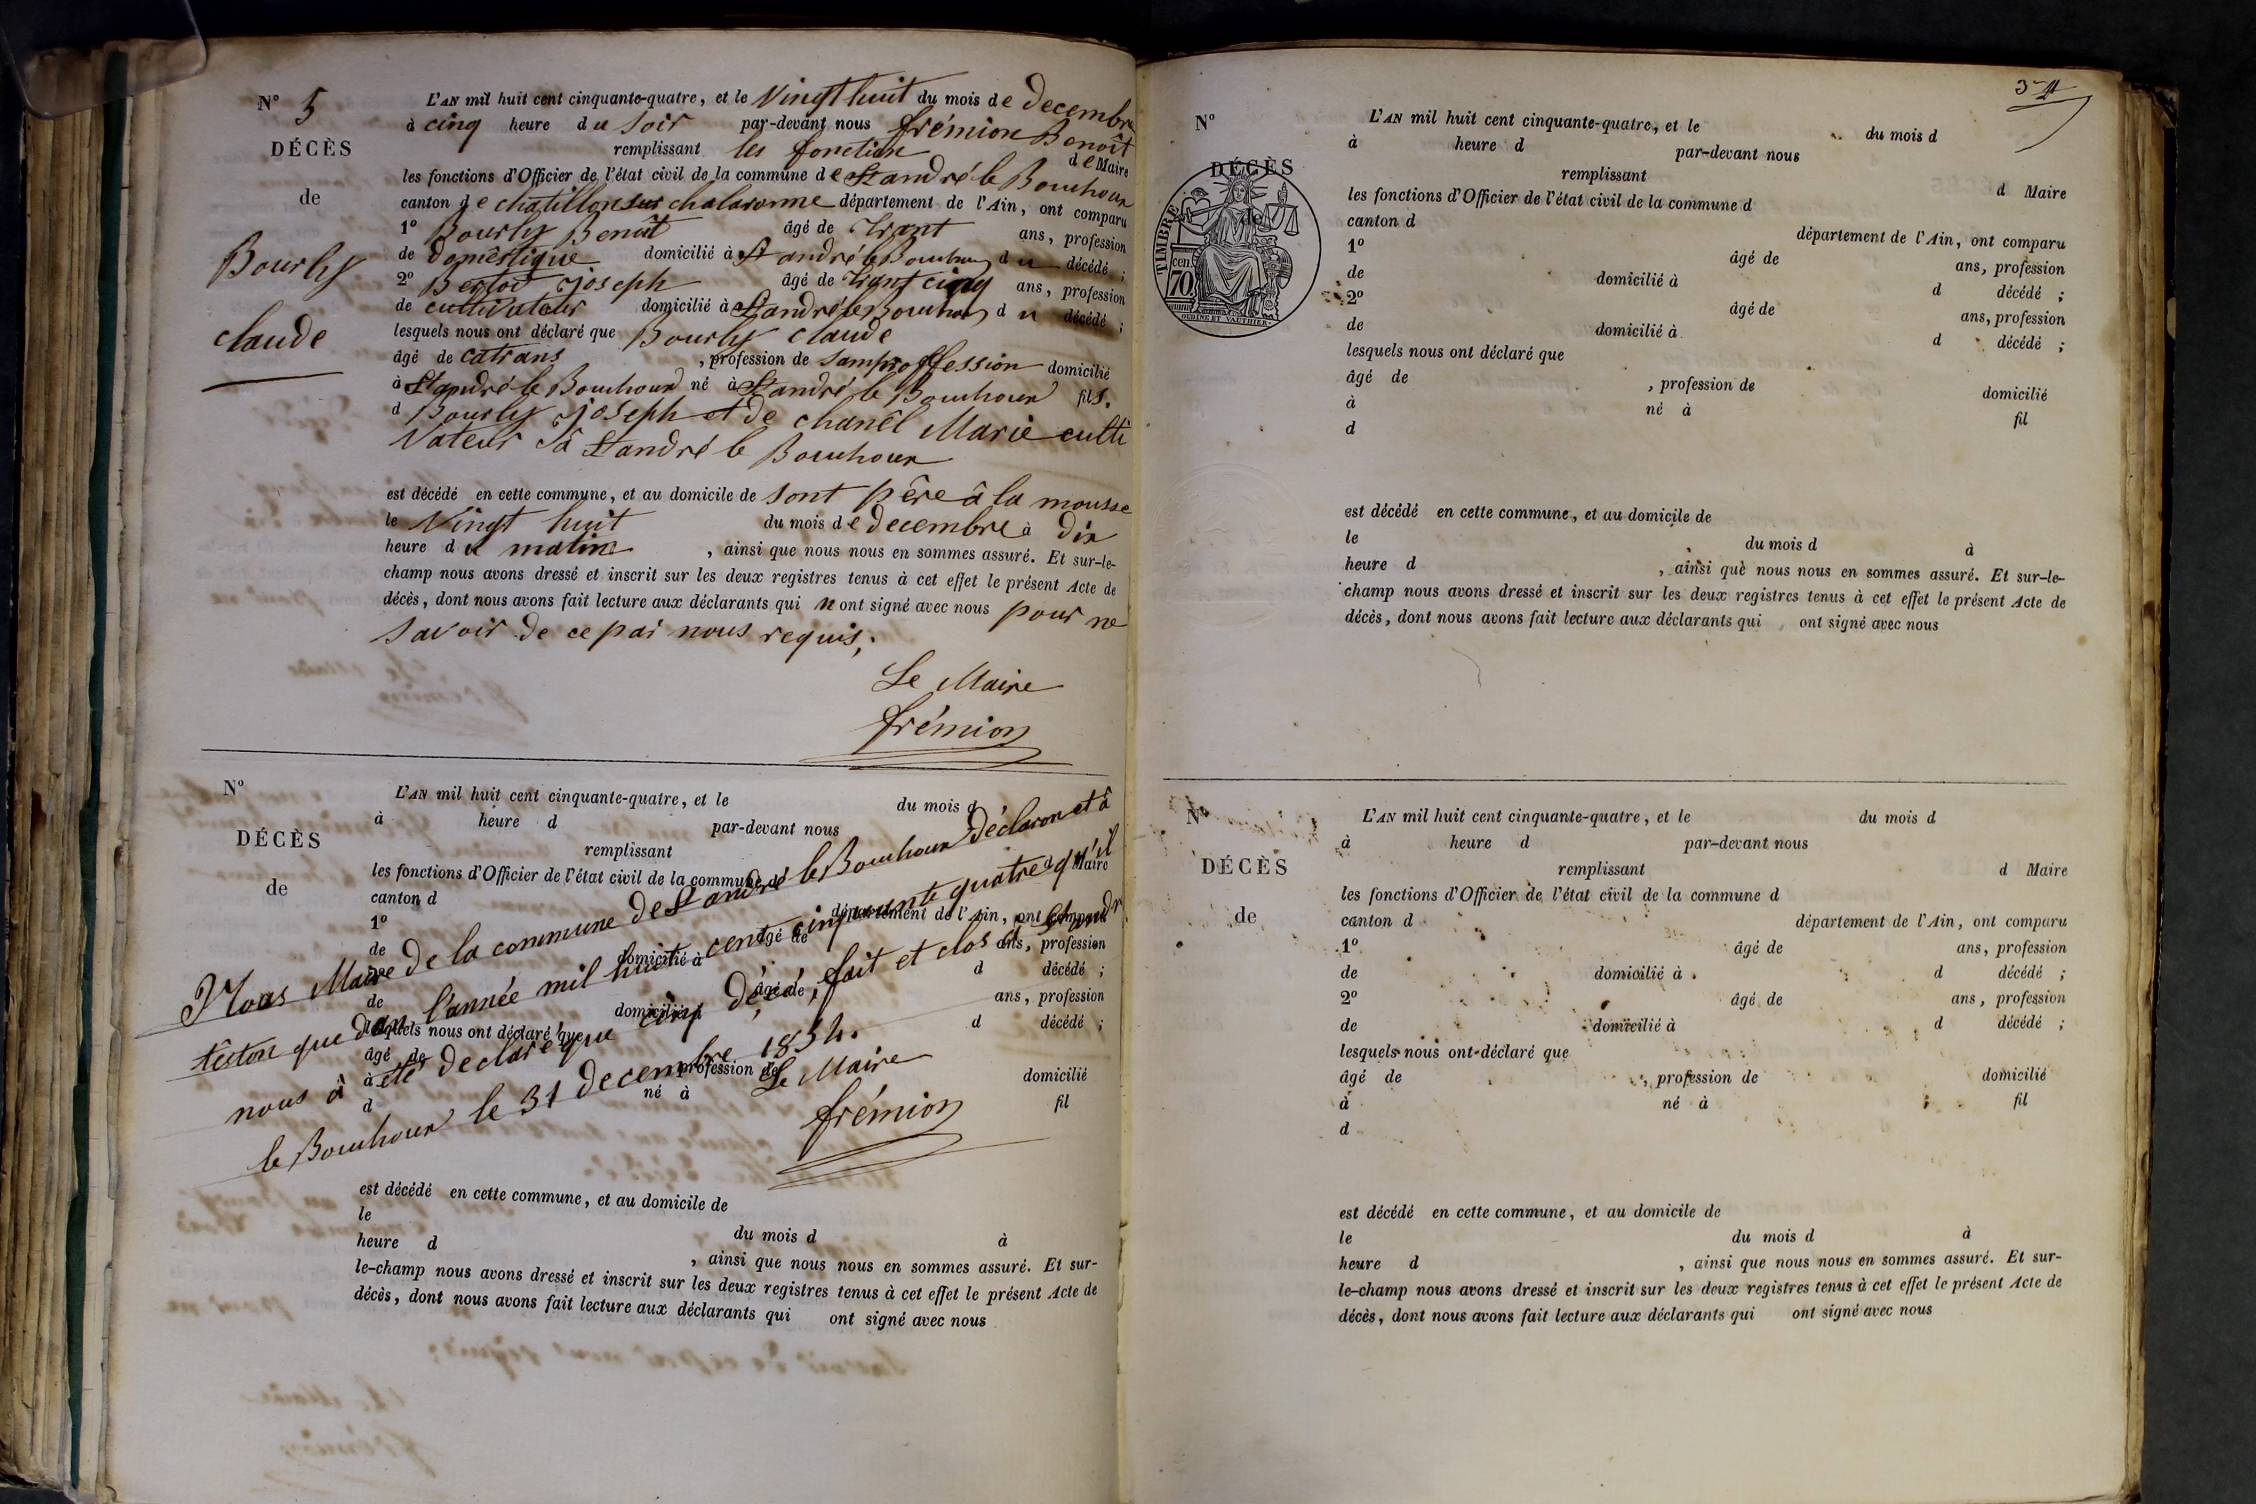 N° 5
DÉCÈS
de
Bourly
claude
L'AN mil huit cent cinquante-quatre, et le Vingt huit du mois de decembre
à cinq heure du soir par-devant nous frémion Benoît
remplissant les fonction de Maire
les fonctions d'Officier de l'état civil de la commune de St andré le Bouchoux
canton de chatillon sur chalaronne département de l'Ain, ont comparu
1° Bourly Benoit âgé de trant ans, profession
de domêstique domicilié à St andré le Bouchoux du décédé ;
2° joseph âgé de trant cinq ans, profession
de cultivateur domicilié à St andré le Bouchoux du décédé ;
lesquels nous ont déclaré que Bourly claude
âgé de catrans , profession de samproffession domicilié
à St andré le Bouchoux né à St andré le Bouchoux fils.
d Bourly joseph et de chanêl Marie culti
Vateur à St andré le Bouchoux
est décédé en cette commune, et au domicile de sont pêre â la mousse
le Vingt huit du mois de decembre à dix
heure du matin , ainsi que nous nous en sommes assuré. Et sur-le-
champ nous avons dressé et inscrit sur les deux registres tenus à cet effet le présent Acte de
décès, dont nous avons fait lecture aux déclarants qui n ont signé avec nous pour ne
savoir de ce par nous requis,
Le Maire
frémion
N°
DÉCÈS
de
L'AN mil huit cent cinquante-quatre, et le du mois d
à heure d par-devant nous
remplissant d Maire
les fonctions d'Officier de l'état civil de la commune d
canton d département de l'Ain, ont comparu
1° âgé de ans, profession
de domicilié à d décédé ;
2° âgé de ans, profession
de domicilié à d décédé ;
lesquels nous ont déclaré que
âgé de profession de domicilié
à né à fil
d
Nous Maire de la commune de St andré le Bouchoux déclaron et â
têston que dan l'année mil huit cent cinquante quatre qu'il
nous â été declaré que cinq décé, fait et clos a St andr
le Bouchoux le 31 decembre 1854.
Le Maire
frémion
est décédé en cette commune, et au domicile de
le du mois d à
heure d , ainsi que nous nous en sommes assuré. Et sur-
le-champ nous avons dressé et inscrit sur les deux registres tenus à cet effet le présent Acte de
décès, dont nous avons fait lecture aux déclarants qui ont signé avec nous
N°
DÉCÈS
de
TIMBRE
70 cen.
OUDINE ET VAUTHIER
L'AN mil huit cent cinquante-quatre, et le du mois d
à heure d par-devant nous
remplissant d Maire
les fonctions d'Officier de l'état civil de la commune d
canton d département de l'Ain, ont comparu
1° âgé de ans, profession
de domicilié à d décédé ;
2° âgé de ans, profession
de domicilié à d décédé ;
lesquels nous ont déclaré que
âgé de , profession de domicilié
à né à fil
d
est décédé en cette commune, et au domicile de
le du mois d à
heure d , ainsi que nous nous en sommes assuré. Et sur-le-
champ nous avons dressé et inscrit sur les deux registres tenus à cet effet le présent Acte de
décès, dont nous avons fait lecture aux déclarants qui ont signé avec nous
N°
DÉCÈS
de
L'AN mil huit cent cinquante-quatre, et le du mois d
à heure d par-devant nous
remplissant d Maire
les fonctions d'Officier de l'état civil de la commune d
canton d département de l'Ain, ont comparu
1° âgé de ans, profession
de domicilié à d décédé ;
2° âgé de ans, profession
de domicilié à d décédé ;
lesquels nous ont déclaré que
âgé de , profession de domicilié
à né à fil
d
est décédé en cette commune, et au domicile de
le du mois d à
heure d , ainsi que nous nous en sommes assuré. Et sur-
le-champ nous avons dressé et inscrit sur les deux registres tenus à cet effet le présent Acte de
décès, dont nous avons fait lecture aux déclarants qui ont signé avec nous